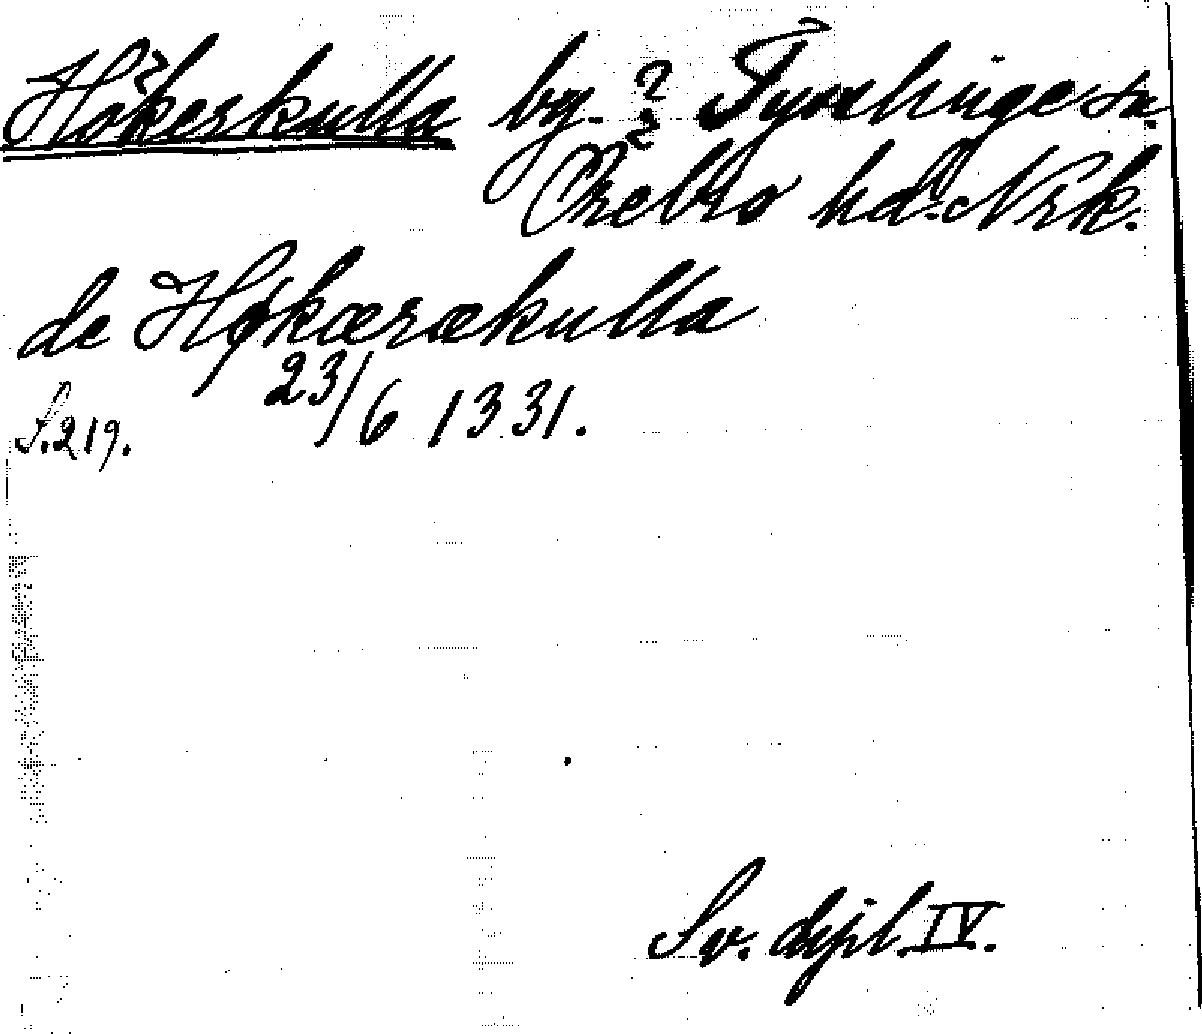 Hökerskulla by. ? Tysslinge sn.
Örebro hd. Nrk.
de Høkærækulla
23/6 1331.
S. 219.
Sv. dipl. IV.